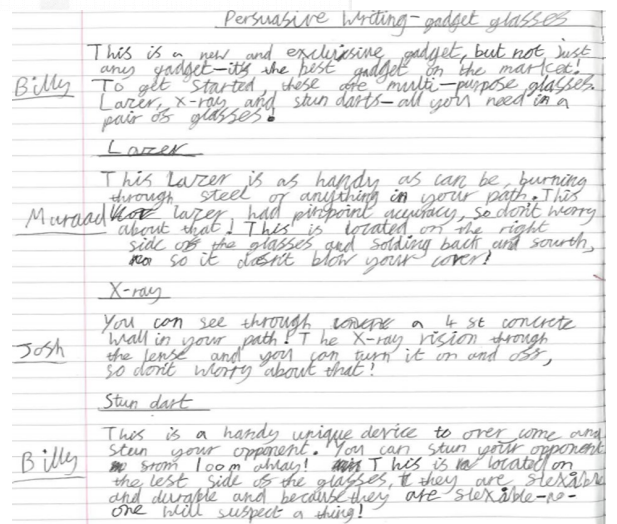 Persuasive Writing - gadget glasses
This is a new and exclusive gadget, but not just
any gadget - its the best gadget on the market!
Billy
To get started, these are multi-purpose glasses.
Lazer, x-ray and stun darts - all you need in a
pair of glasses!
Lazer
This Lazer is as handy as can be, burning
through steel or anything in your path. This
Muraad
lazer had pinpoint accuracy, so dont worry
about that! This is located on the right
side of the glasses and folding back and fourth,
so it doesn't blow your cover!
X-ray
You can see through a 4 ft concrete
wall in your path! The X-ray vision through
Josh
the lense and you can turn it on and off,
so dont worry about that!
Stun dart
This is a handy unique device to over come and
stun your opponent. You can stun your opponent
Billy
from 100m away! This is located on
the left side of the glasses, they are flexible
and durable and because they are flexible - no-
one will suspect a thing!